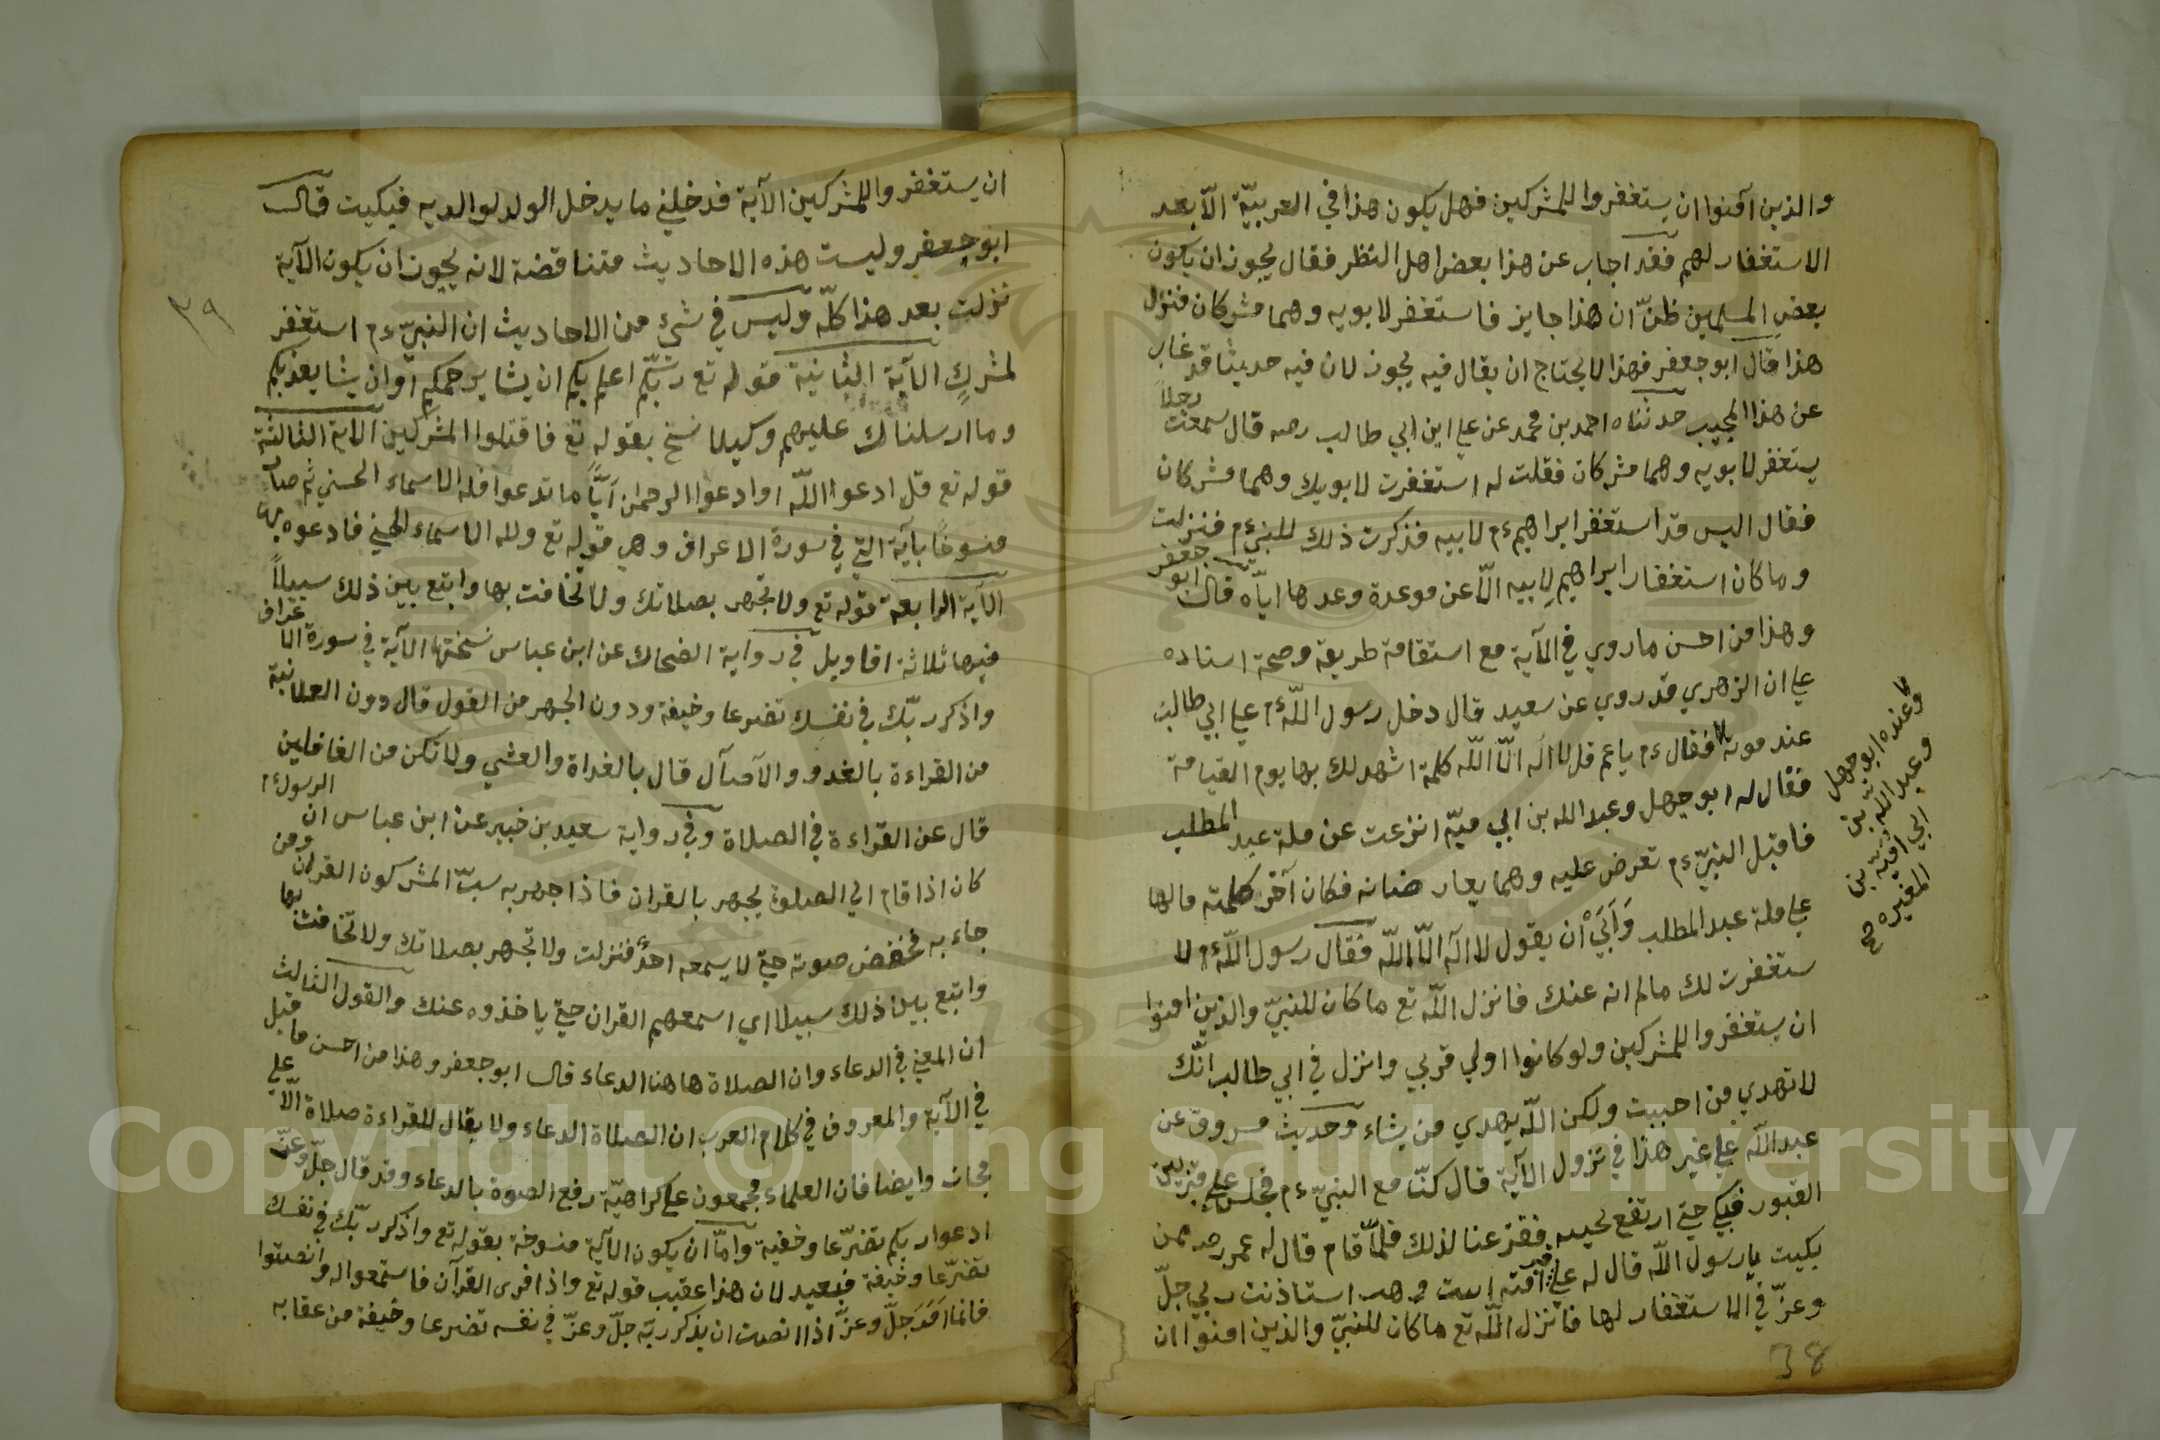 والذين آمنوا ان يستغفروا للمشركين فهل يكون هذا في العربيّة الّا بعد
الاستغفار لهم فقد اجاب عن هذا بعض اهل النظر فقال يجوز ان يكون
بعض المسلمين ظنّ ان هذا جايز فاستغفر لابويه وهما مشركان فنزل
هذا قال ابو جعفر فهذا لا يحتاج ان يقال فيه يجوز لان فيه حديثا قد غاب
عن هذا المجيب حدثناه احمد بن محمد عن علي ابن ابي طالب رضه قال سمعت رجلاً
يستغفر لابويه وهما مشركان فقلت له استغفرت لابويك وهما مشركان
فقال اليس قد استغفر ابراهيم ءم لابيه فذكرت ذلك للنبي ءم فنزلت
وما كان استغفار ابراهيم لابيه الّا عن موعدة وعدها ايّاه قال ابو جعفر
وهذا من احسن ما روي في الآية مع استقامة طريقة وصحة اسناده
علي ان الزهري قد روي عن سعيد قال دخل رسول اللّه ءم علي ابي طالب
عند موته فقال ءم يا عم قل لا اله الّا اللّه كلمة اشهد لك بها يوم القيامة
فقال له ابو جهل وعبد الله بن ابي ميّه انزعت عن ملة عبد المطلب
فاقبل النبيّ ءم تعرض عليه وهما يعارضانه فكان آخر كلمته مالها
علي ملة عبد المطلب وَاَبَيْ أن يقول لا اله الّا اللّه فقال رسول اللّه ءم لا
ستغفرت لك مالم انه عنك فانزل اللّه تع ما كان للنبيّ والذين امنوا
ان يستغفروا للمشركين ولو كانوا اولي قربي وانزل في ابي طالب انّك
لا تهدي من احببت ولكن اللّه يهدي من يشاء وحديث مسروق عن
عبد اللّه علي غير هذا في نزول الآية قال كنّا مع النبيّ ءم فجلس علي قبر بين
القبور فبكي حتي ارتفع نحيبه ففزعنا لذلك فلمّا قام قال له عمر رضه ممن
بكيت يا رسول اللّه قال له علي قبر آمنة استاذنت ربي جلّ
وعزّ في الاستغفار لها فانزل اللّه تع ما كان للنبيّ والذين امنوا ان
وعنده ابو جهل
وعبد اللّه بن
ابي اميّه بن
المغيره صح
38
٣٩
ان يستغفروا للمشركين الآية فدخلني ما يدخل الولد لوالديه فبكيت قال
ابو جعفر وليست هذه الاحاديث متناقضة لانه يجوز ان يكون الآية
نزلت بعد هذا كلّه وليس في شئ من الاحاديث ان النبيّ ءم استغفر
لمشركٍ الآية الثانية قوله تع ربّكم اعلم بكم ان يشا يرحمكم او ان يشا يعذبكم
وما ارسلناك عليهم وكيلا نسخ بقوله تع فاقتلوا المشركين الآية الثالثة
قوله تع قل ادعوا اللّه او ادعوا الرحمان اَيّاً ما تدعوا فله الاسماء الحسني ثم صار
منسوخاً بآية التي في سورة الاعراف وهي قوله تع ولله الاسماء الحسني فادعوه بها
الآية الرابعة قوله تع ولا تجهر بصلاتك ولا تخافت بها وابتع بين ذلك سبيلاً
فيها ثلاثة اقاويل في رواية الضحاك عن ابن عباس نسختها الآية في سورة الاعراف
واذكر ربّك في نفسك تضرعا وخيفة ودون الجهر من القول قال دون العلانية
من القراءة بالغدو والآصآل قال بالغداة والعشي ولا تكن من الغافلين
قال عن القراءة في الصلاة وفي رواية سعيد بن خبير عن ابن عباس ان الرسول ءم
كان اذا قام الي الصلوة يجهر بالقران فاذا جهر به سبّ المشركون القران ومن
جاء به فخفض صوته حتي لا يسمعه احدٌ فنزلت ولا تجهر بصلاتك ولا تخافت بها
وابتع بين ذلك سبيلا اي اسمعهم القران حتي ياخذوه عنك والقول الثالث
ان المعني في الدعاء وان الصلاة هاهنا الدعاء قال ابو جعفر وهذا من احسن ما قيل
في الآية والمعروف في كلام العرب ان الصلاة الدعاء ولا يقال للقراءة صلاة الّا علي
مجاز وايضا فان العلماء مجمعون علي كراهيّة رفع الصوة بالدعاء وقد قال جلّ وعزّ
ادعوا ربكم تضرّعا وخفية وامّا ان يكون الآية منسوخة بقوله تع واذكر ربّك في نفسك
تضرّعا وخيفة فبعيد لان هذا عقيب قوله تع واذا قرى القرآن فاستمعوا له وانصتوا
فانما اَمَرَ جَلّ وعزّ اذا انصت ان يذكر ربّه جلّ وعزّ في نفسه تضرعا وخيفة من عقابه
Copyright © King Saud University
195